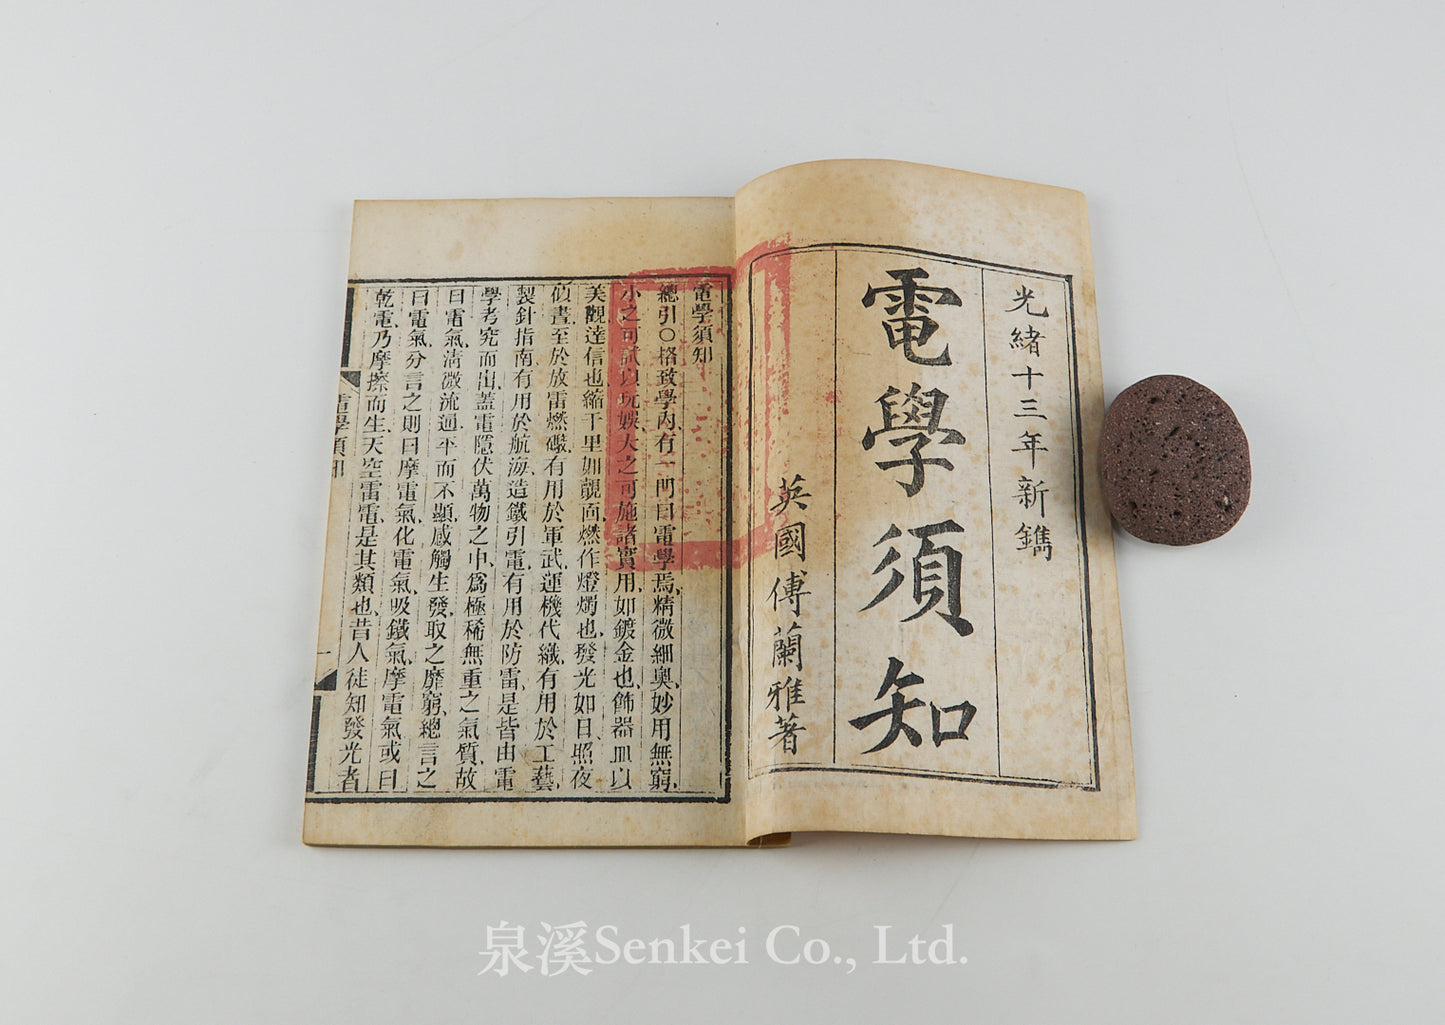 光緒十三年新鐫
電學須知
英國傅蘭雅著
電學須知
總引○格致學內有一門曰電學焉、精微細奧、妙用無窮、
小之可試以玩娛、大之可施諸實用、如鍍金也、飾器皿以
美觀、達信也、縮千里如覿面、燃作燈燭也、發光如日、照夜
偵晝、至於放雷燃礮、有用於軍武、運機代織、有用於工藝、
製針指南、有用於航海、造鐵引電、有用於防雷、是皆由電
學考究而出、蓋電隱伏萬物之中、為極稀無重之氣質、故
曰電氣、清微流通、平而不顯、感觸生發、取之靡窮、總言之
曰電氣、分言之則曰摩電氣、化電氣、吸鐵氣、摩電氣或曰
乾電、乃摩擦而生、天空雷電、是其類也、昔人徒知發光者
電學須知
一
泉溪Senkei Co., Ltd.